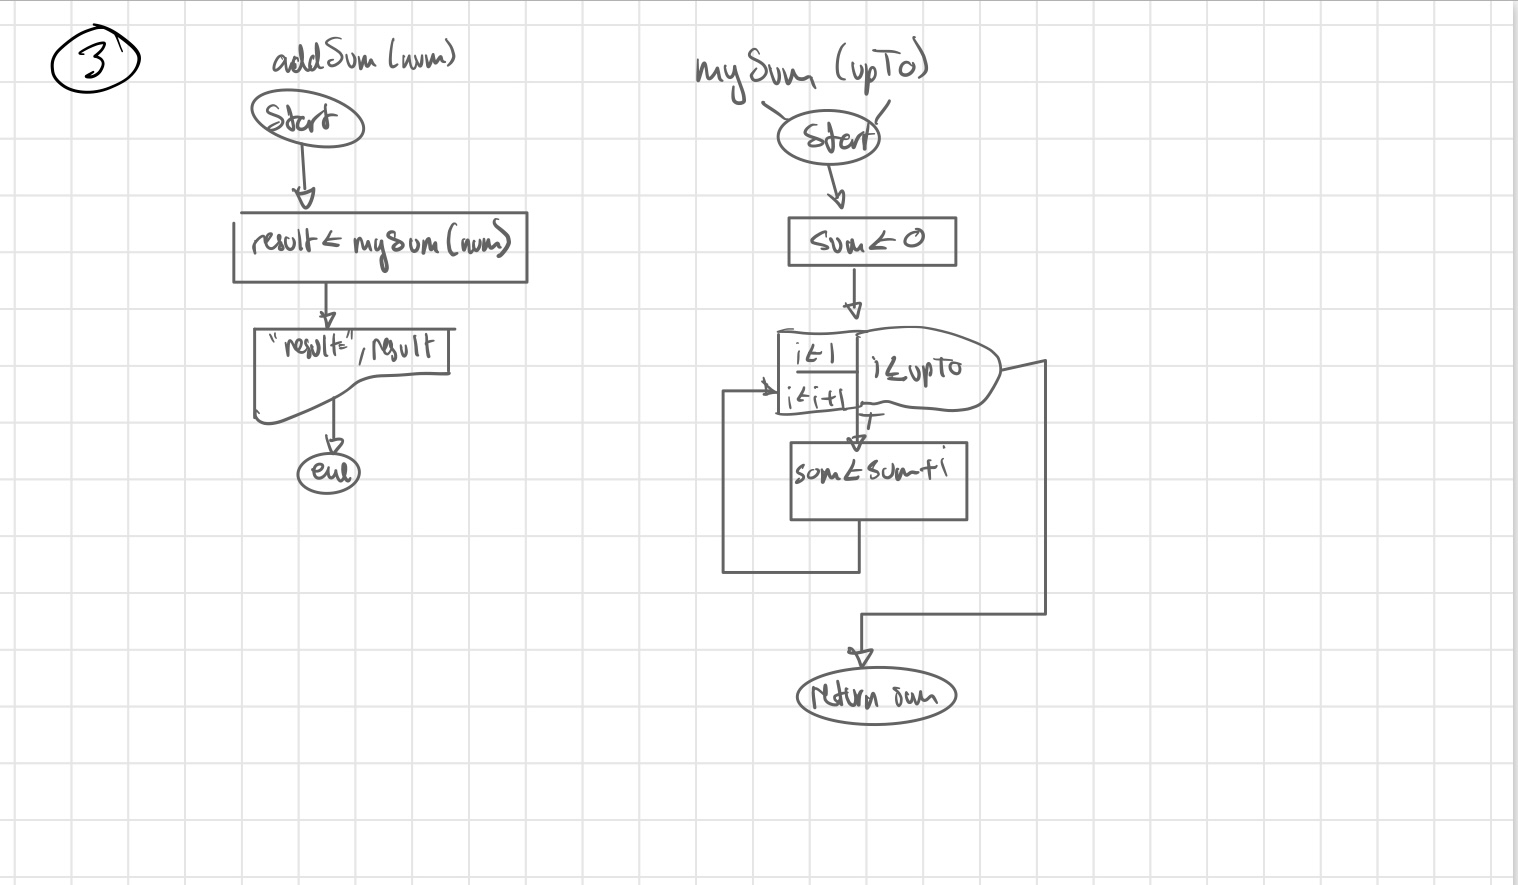 3
addSum (num)
Start
result ← mySum (num)
"result=", result
end
mySum (upTo)
Start
sum ← 0
i ← 1
i ← i+1
i ≤ upTo
T
sum ← sum + i
return sum